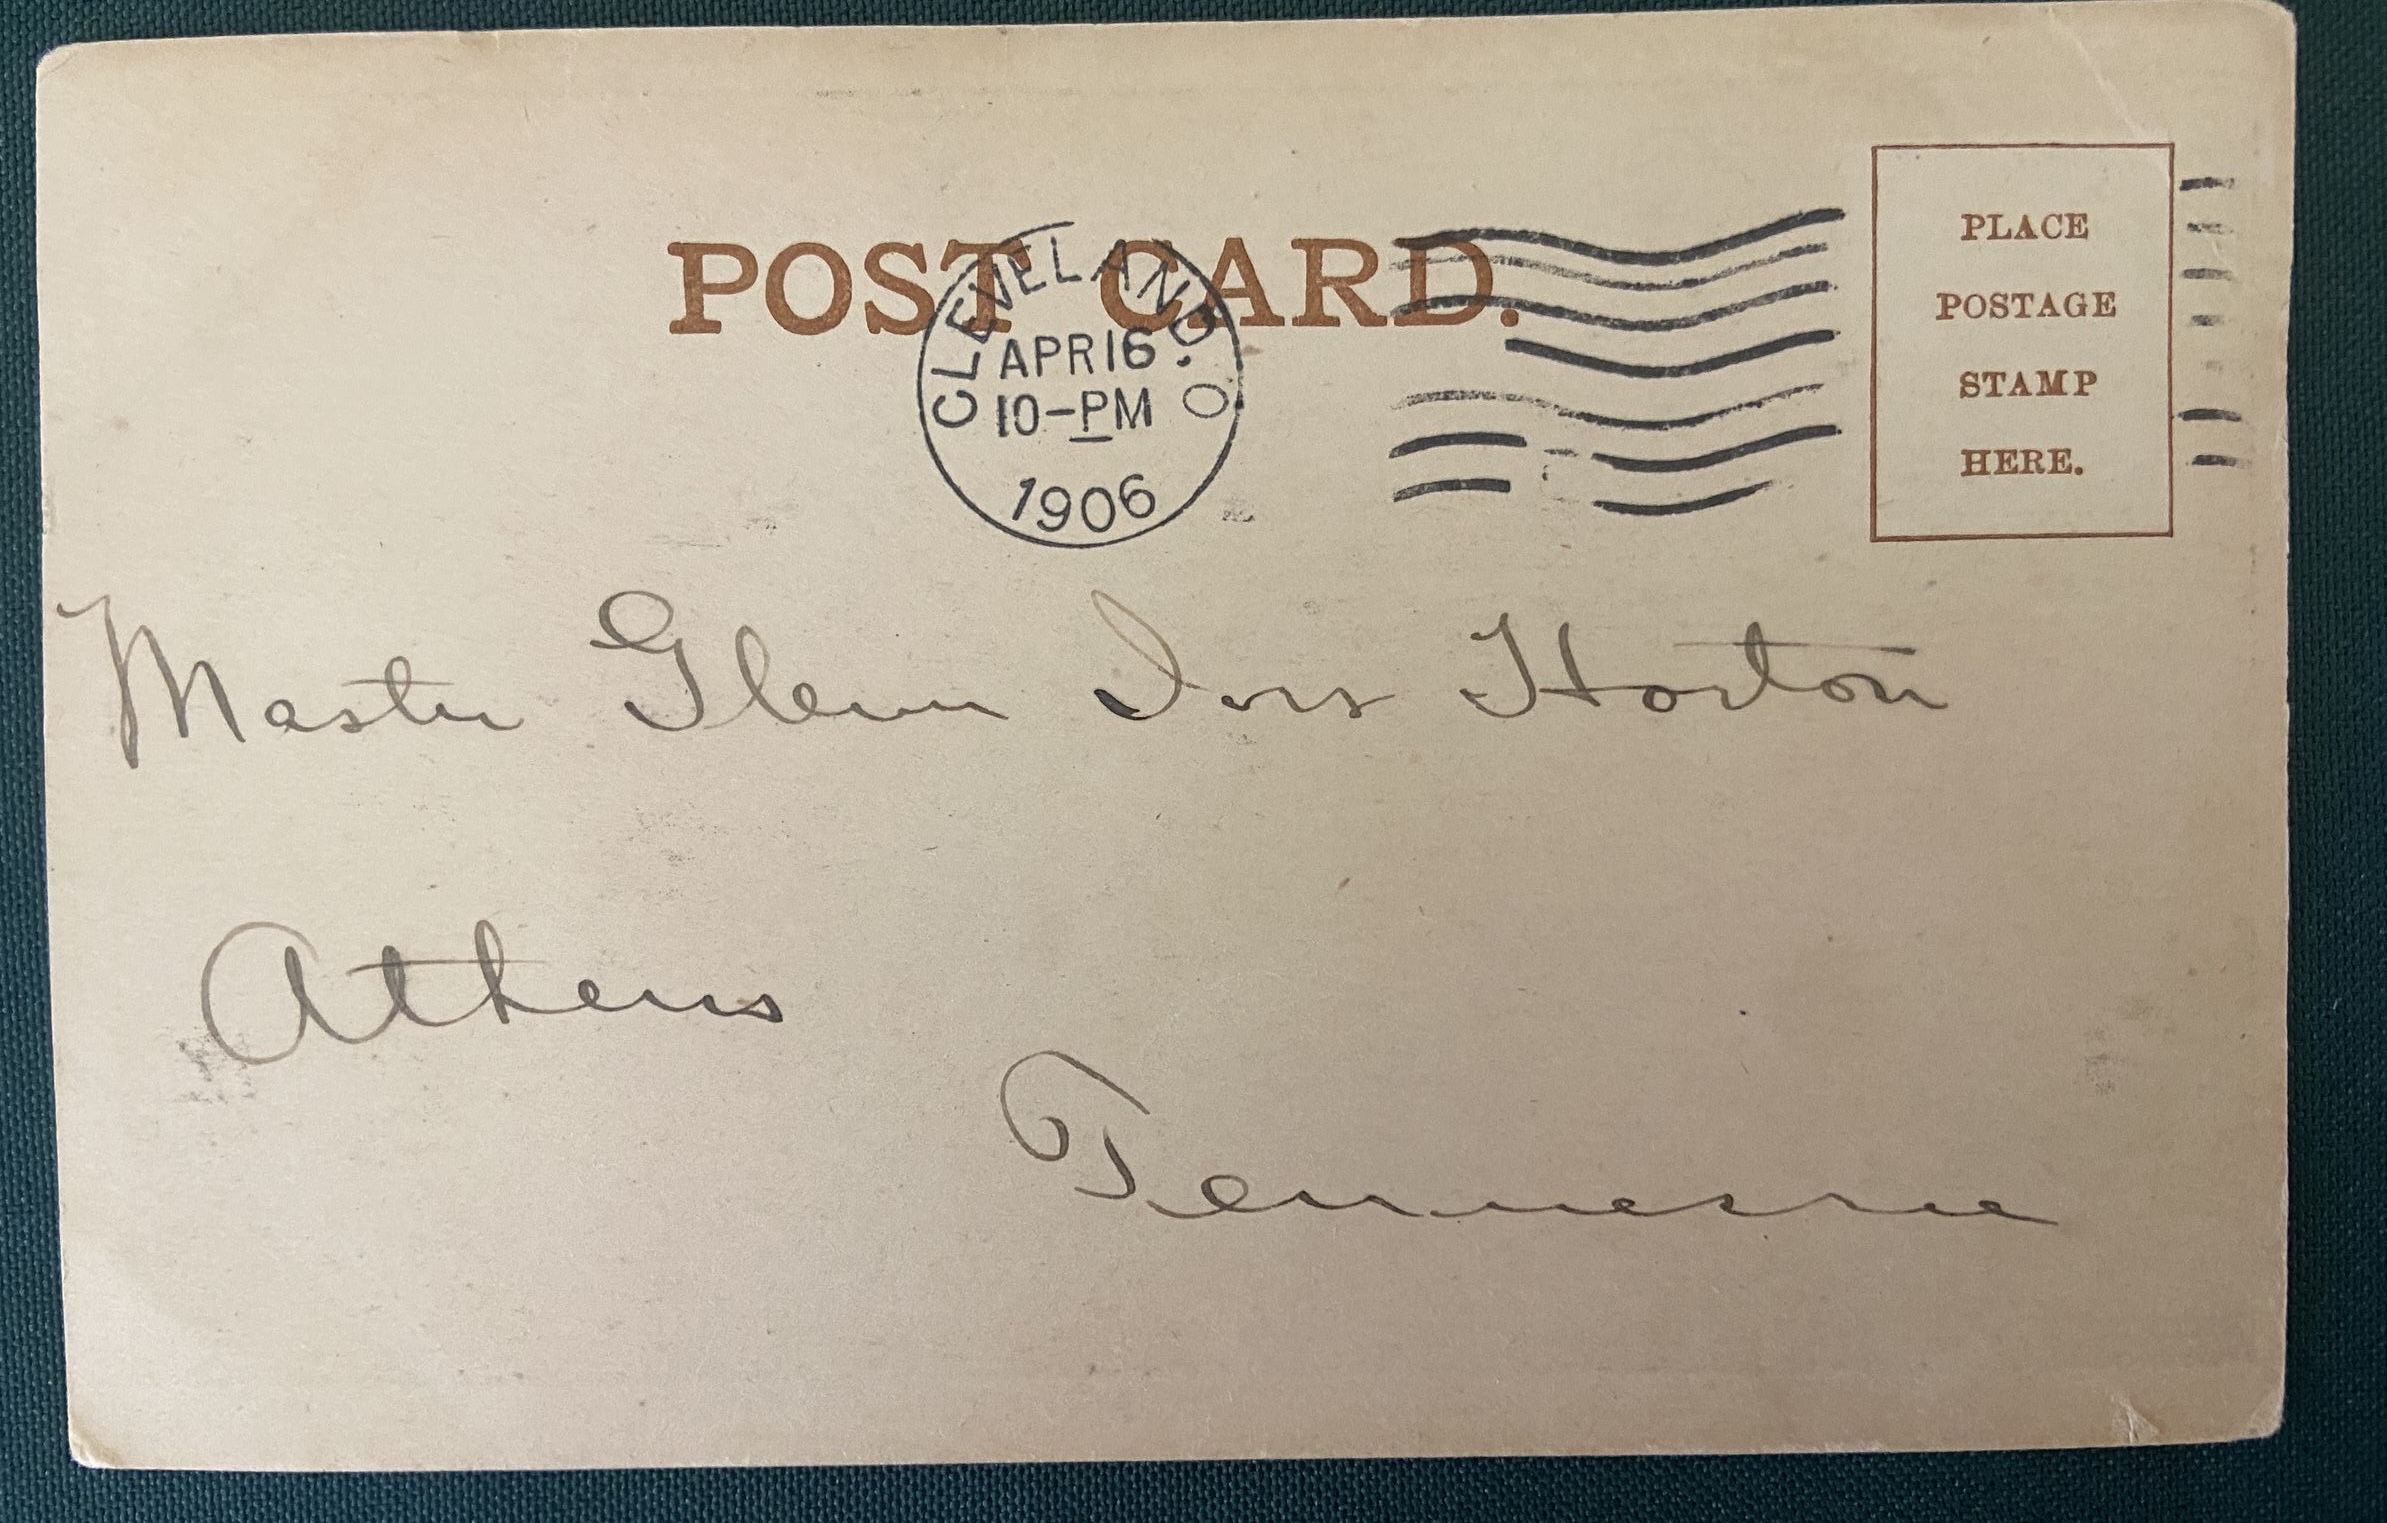 POST CARD.
CLEVELAND, O.
APR 16
10-PM
1906
PLACE
POSTAGE
STAMP
HERE.
Master Glenn Horton
Athens
Tennessee